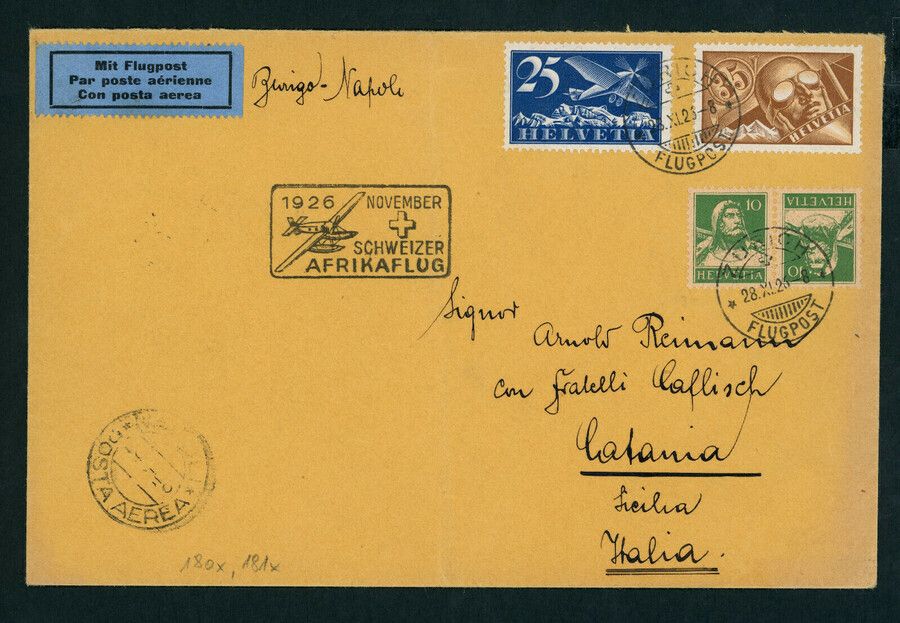 Mit Flugpost
Par poste aérienne
Con posta aerea
Zurigo-Napoli
25
HELVETIA
35
HELVETIA
FLUGPOST
1926 NOVEMBER
SCHWEIZER
AFRIKAFLUG
10
HELVETIA
10
HELVETIA
ZÜRICH
28.XI.26-8
FLUGPOST
Signor
Arnold Reimann
con Fratelli Caflisch
Catania
Sicilia
Italia.
POSTA AEREA
180x, 181x